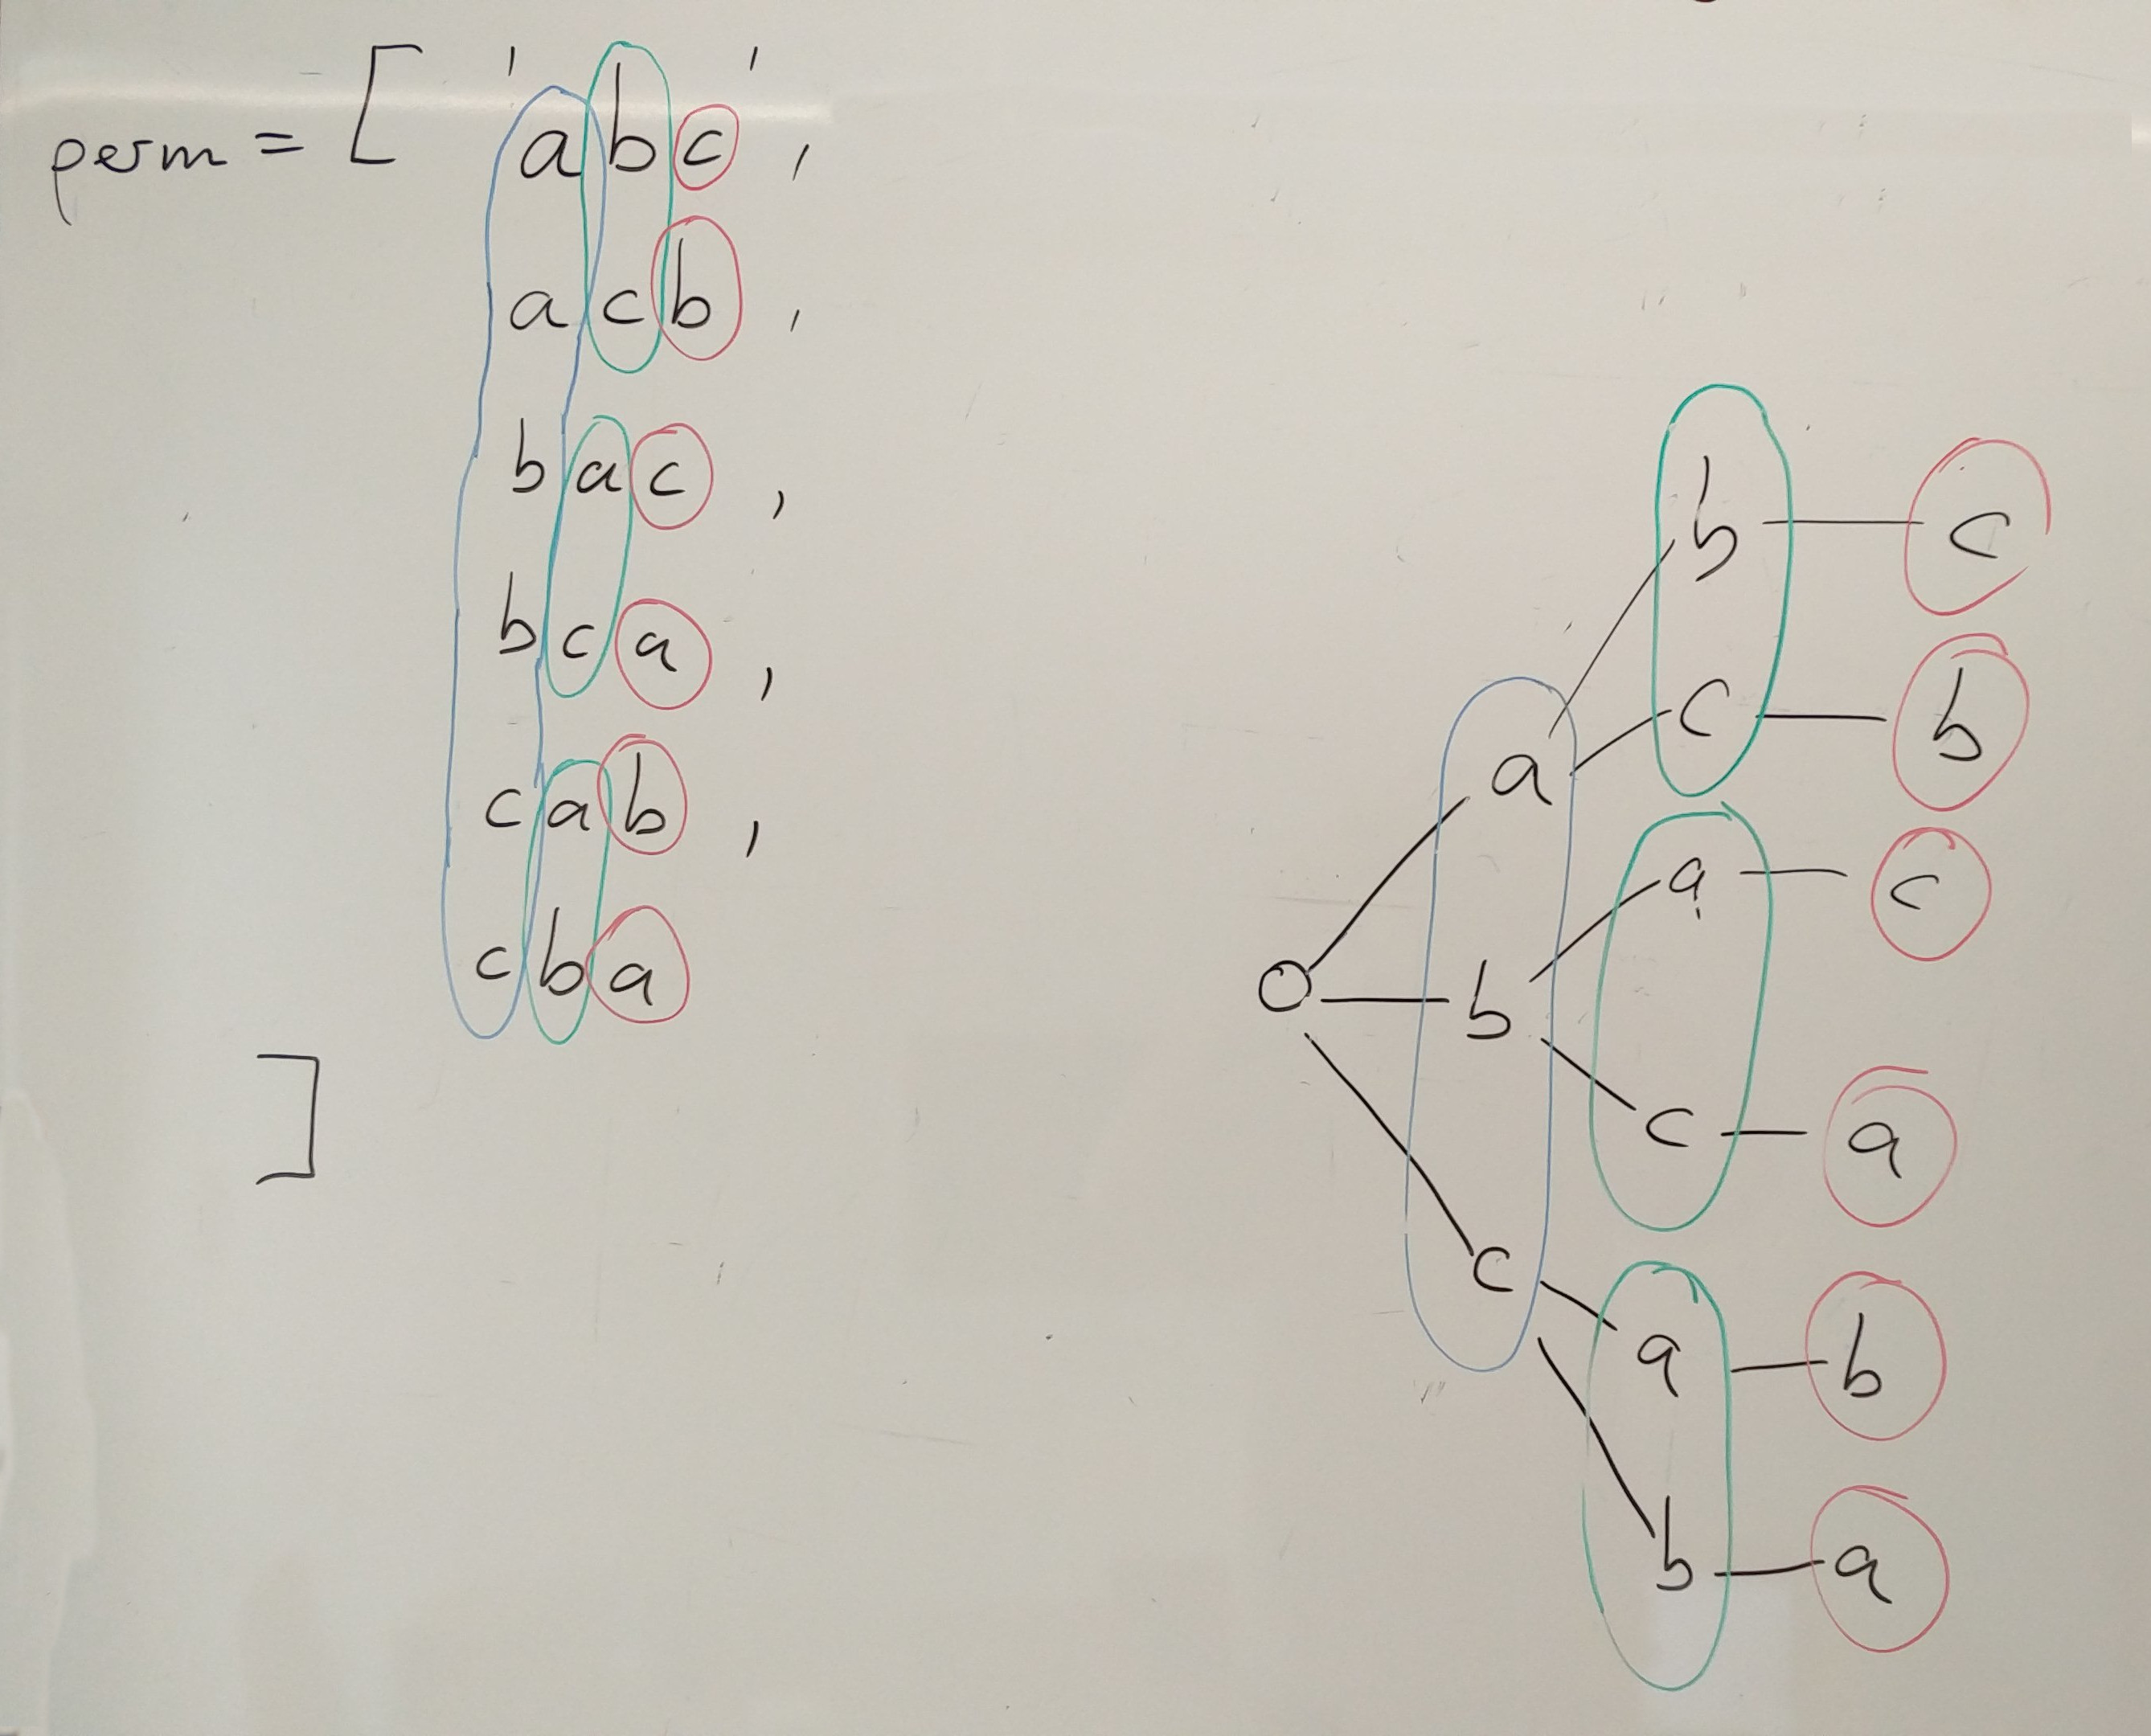 perm = [ ' a b c ' ,
a c b ,
b a c ,
b c a ,
c a b ,
c b a
]
b c
c b
a
a c
b
c a
c
a b
b a